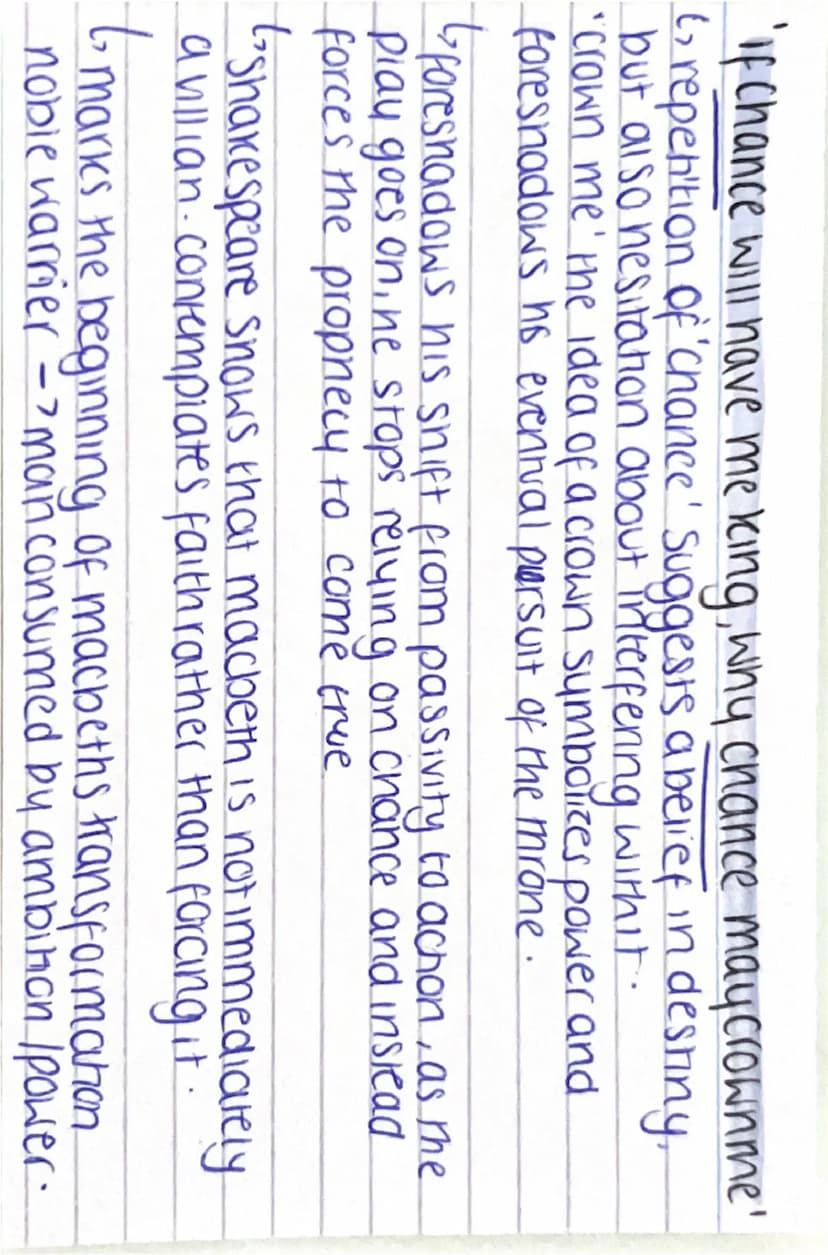 'If chance will have me king, why chance may crown me'
↳ repetition of 'chance' suggests a belief in destiny,
but also hesitation about interfering with it.
'crown me' the idea of a crown symbolizes power and
foreshadows his eventual pursuit of the throne.
↳ foreshadows his shift from passivity to action, as the
play goes on, he stops relying on chance and instead
forces the prophecy to come true
↳ shakespeare shows that macbeth is not immediately
a villian. contemplates faith rather than forcing it.
↳ marks the beginning of macbeths transformation
noble warrier -> man consumed by ambition / power.